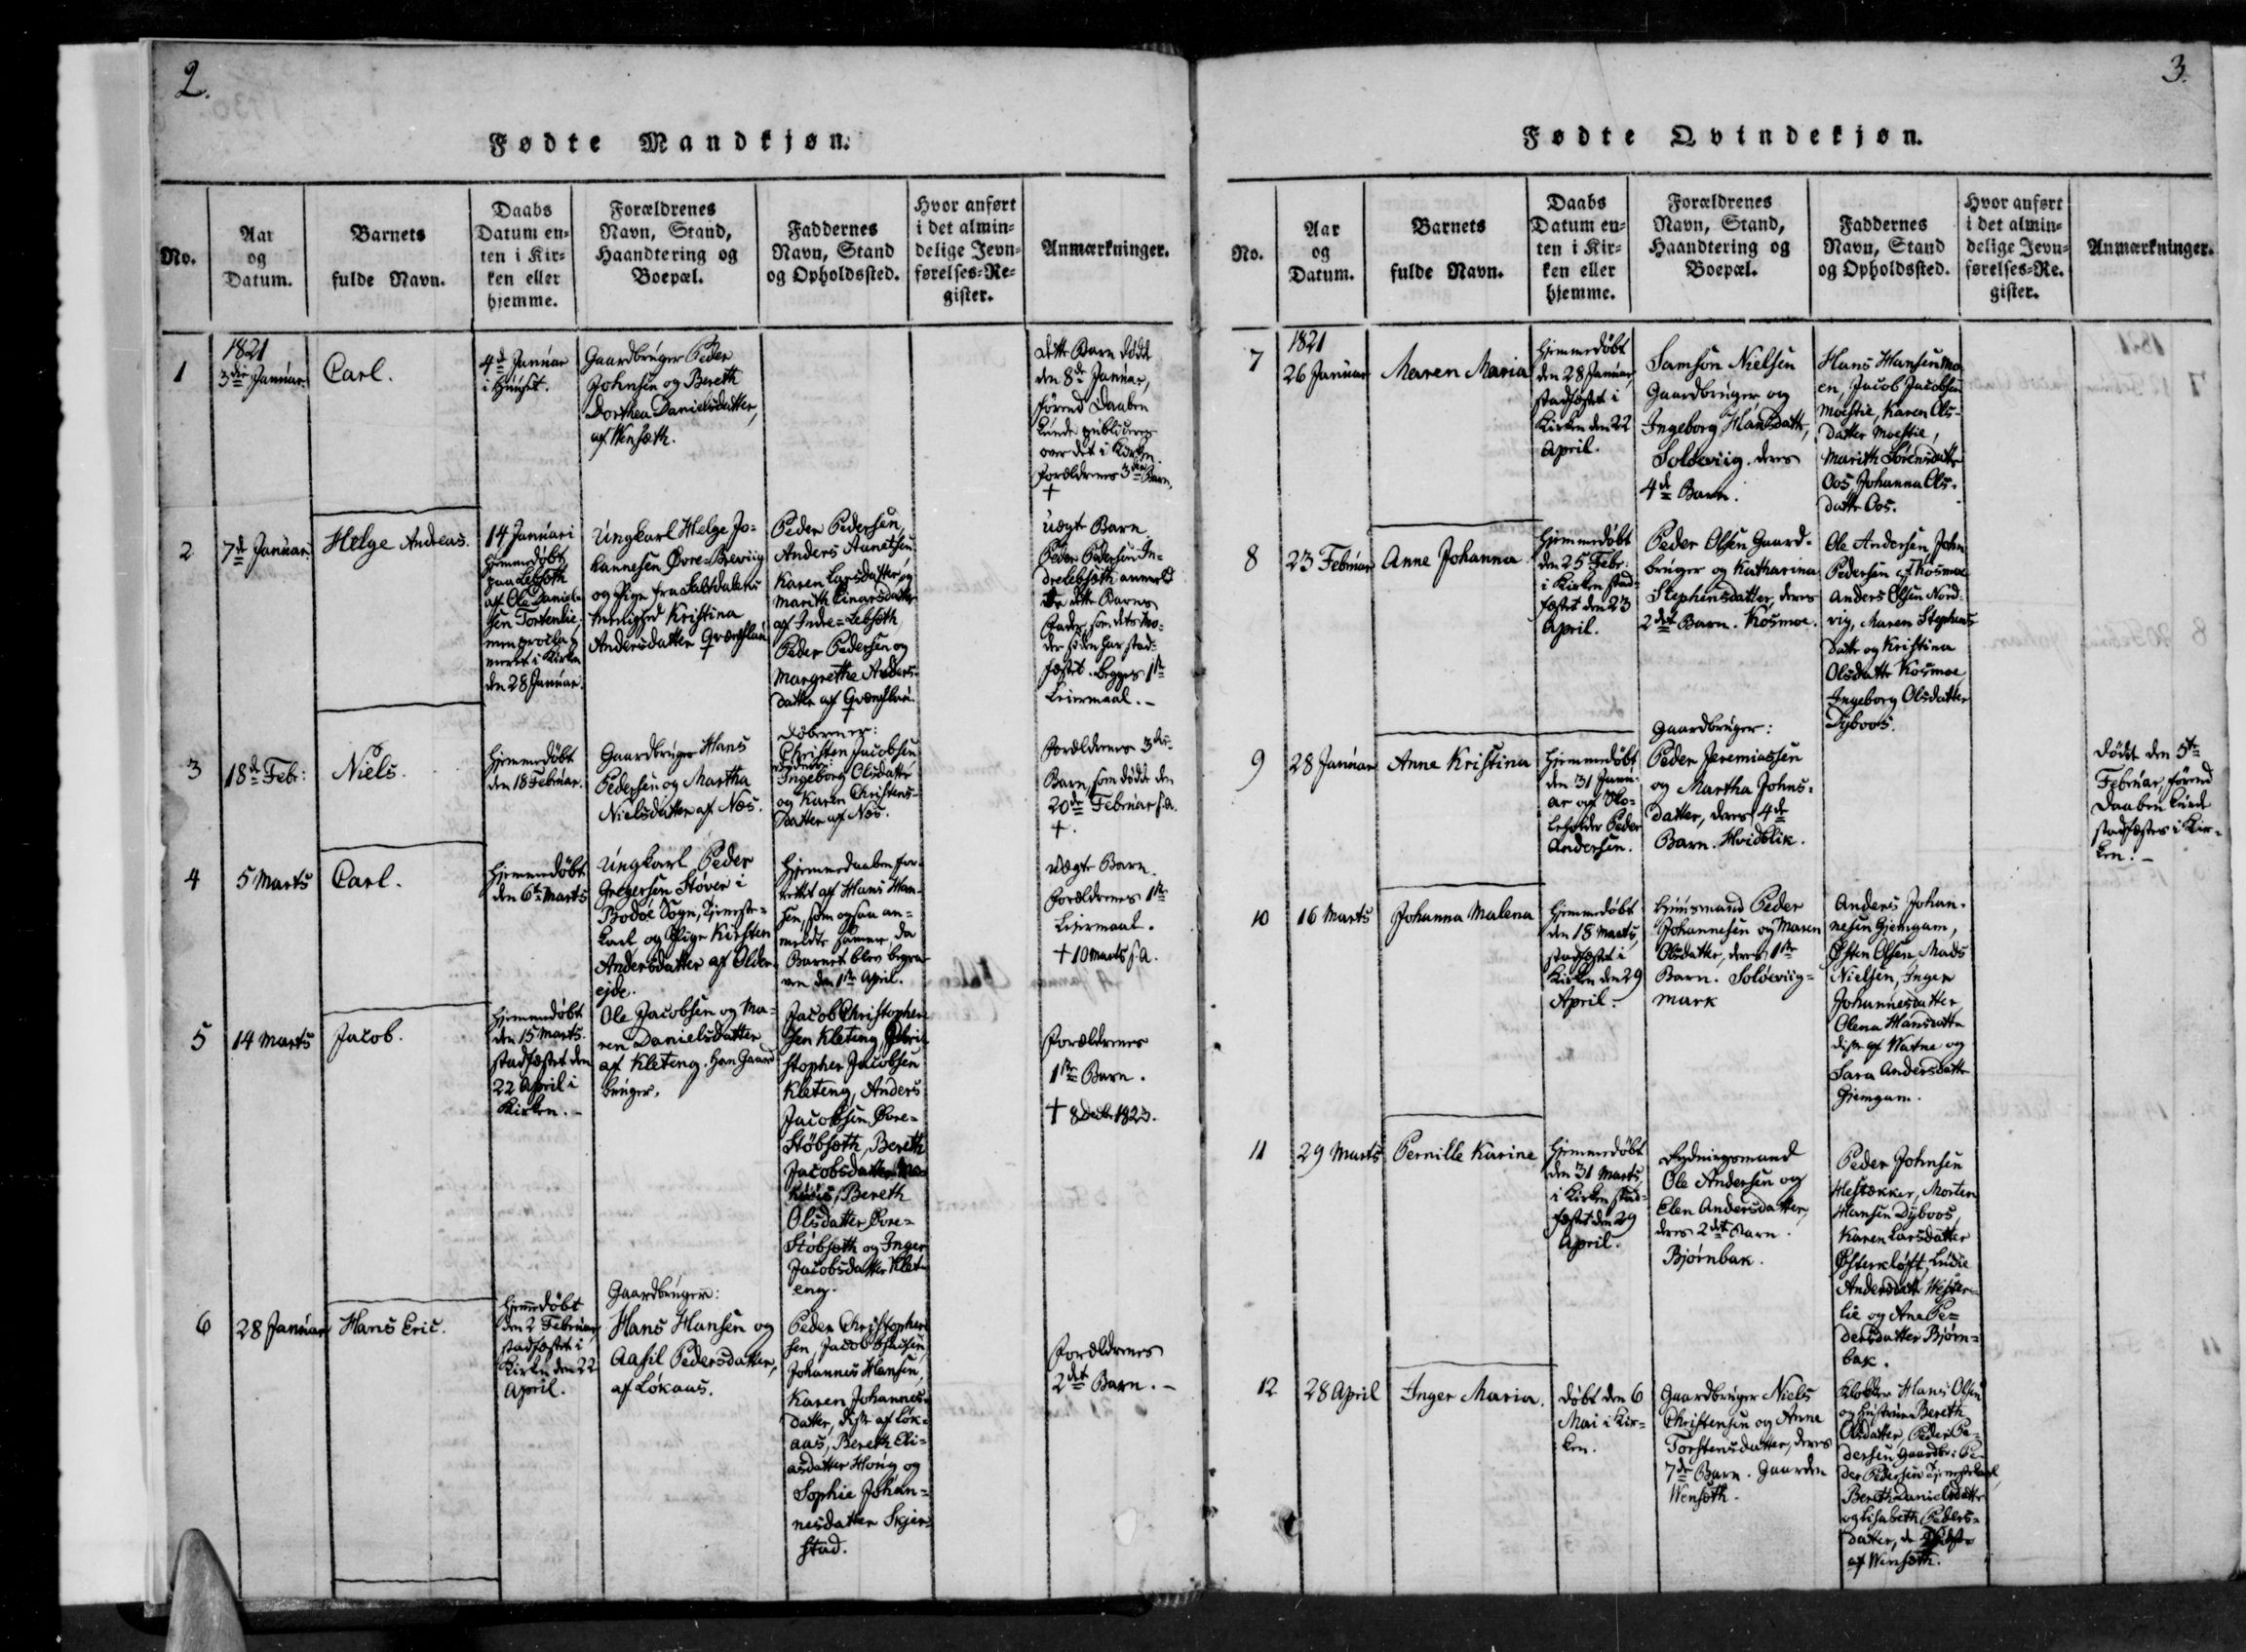 2.
Fødte Mandkjøn.
No.
Aar
og
Datum.
Barnets
fulde Navn.
Daabs
Datum en-
ten i Kir-
ken eller
hjemme.
Forældrenes
Navn, Stand,
Haandtering og
Boepæl.
Faddernes
Navn, Stand
og Opholdssted.
Hvor anført
i det almin-
delige Jevn-
førelses-Re-
gister.
Anmærkninger.
1
1821
3die Januar.
Carl.
4de Januar
i Huuset.
Gaardbruger Peder
Johnsen og Bereth
Dorthea Danielsdatter,
af Wensæth.
Dette Barn døde
den 8de Januar,
førend Daaben
kunde publiceres
over det i Kirken.
Forældrenes 3die Barn.
+
2
7de Januar.
Helge Andreas.
14 Januari
hjemmedøbt
paa Lebsøth
af Ole Daniel-
sen Tortenlie,
men procla-
meret i Kirken
den 28 Januar.
Ungkarl Helge Jo-
hannesen Øvre-Breviig
og Pige fra Saltdalens
Menighed Kristina
Andersdatter Qvænflaae
Peder Pedersen,
Anders Aanetsen
Karen Larsdatter og
Marith Einarsdatter
af Indre-Lebsøth,
Peder Pedersen og
Margrethe Anders-
datter af Qvænflaae.
Uægte Barn
Peder Pedersen In-
dreLebsøth anmeldt
dette Barns
Fader, som dets Mo-
der siden har stad-
fæstet. Begges 1ste
Leiermaal. -
3
18de Febr:
Niels.
Hjemmedøbt
den 18 Februar.
Gaardbruger Hans
Pedersen og Martha
Nielsdatter af Næs.
Døberner:
Christen Jacobsen
Ingeborg Olsdatter
og Karen Christens-
datter af Næs.
Forældrenes 3die
Barn, som døde den
20de Februar s.A.
+.
4
5 Marts
Carl.
Hjemmedøbt
den 6te Marts
Ungkarl Peder
Gregersen Støver i
Bodøe Sogn, Tjeneste-
karl og Pige Kirsten
Andersdatter af Older-
ejde.
Hjemmedaaben for-
rettet af Hans Han-
sen, som ogsaa an-
meldte samme, da
Barnet blev begra-
ven den 1ste April.
Uægte Barn.
Forældrenes 1ste
Leiermaal.
+ 10 Marts s.A.
5
14 Marts
Jacob.
Hjemmedøbt
den 15 Marts.
stadfæstet den
22 April i
Kirken. -
Ole Jacobsen og Ma-
ren Danielsdatter
af Kleteng. Han Gaard
bruger.
Jacob Christopher
sen Kleteng, Chri-
stopher Jacobsen
Kleteng, Anders
Jacobsen Øvre-
Støbsæth, Bereth
Jacobsdatter
Bereth
Olsdatter Øvre-
Støbsæth og Inger
Jacobsdatter Klet-
eng.
Forældrenes
1ste Barn.
+ 8 Decbr 1823.
6
28 Januar
Hans Eric.
Hjemmedøbt
den 2 Februar,
stadfæstet i
Kirken den 22
April.
Gaardbruger:
Hans Hansen og
Aasil Pedersdatter,
af Løkaas.
Peder Christopher
sen, Jacob
Johannes Hansen,
Karen Johannes-
datter, disse af Løk-
aas, Bereth Eli-
asdatter Honig og
Sophie Johan-
nesdatter Skjer-
stad.
Forældrenes
2det Barn. -
3.
Fødte Qvindekjøn.
No.
Aar
og
Datum.
Barnets
fulde Navn.
Daabs
Datum en-
ten i Kir-
ken eller
hjemme.
Forældrenes
Navn, Stand,
Haandtering og
Boepæl.
Faddernes
Navn, Stand
og Opholdssted.
Hvor anført
i det almin-
delige Jevn-
førelses-Re.
gister.
Anmærkninger.
7
1821
26 Januar
Maren Maria
Hjemmedøbt
den 28 Januar,
stadfæstet i
Kirken den 22
April.
Samson Nielsen
Gaardbruger og
Ingeborg Hansdatter,
Soløeviig. deres
4de Barn.
Hans Hansen Mo
en, Jacob Jacobsen
Moestie, Karen Ols-
datter Moestie,
Marith Sørensdatter
Oos, Johanna Ols-
datter Oos.
8
23 Februar
Anne Johanna
Hjemmedøbt
den 25 Febr.
i Kirken stad-
fæstet den 23
April.
Peder Olsen Gaard-
bruger og Katharina
Stephensdatter, deres
2det Barn. Kosmoe.
Ole Andersen, John
Pedersen af Kosmoe
Anders Olsen Nord-
vig, Maren Stephens
datter og Kristina
Olsdatter Kosmoe
Ingeborg Olsdatter
Dyboos.
9
28 Januar
Anne Kristina
Hjemmedøbt
den 31 Janu-
ar af Sko-
leholder Peder
Andersen.
Gaardbruger:
Peder Jeremiassen
og Martha Johns-
datter, deres 4de
Barn. Hvidblik.
Døde den 5te
Februar, førend
Daaben kunde
stadfæstes i Kir-
ken. -
10
16 Marts
Johanna Malena
Hjemmedøbt
den 18 Marts,
stadfæstet i
Kirken den 29
April. -
Huusmand Peder
Johannesen og Maren
Olsdatter, deres 1ste
Barn. Soløeviig-
mark
Anders Johan-
nesen Gjemgam,
Østen Olsen, Mads
Nielsen, Inger
Johannesdatter
Olena Hansdatter
disse af Watne og
Sara Andersdatter
Gjemgam.
11
29 Marts
Pernille Karine
Hjemmedøbt
den 31 Marts,
i Kirken stad-
fæstet den 29
April.
Rydningsmand
Ole Andersen og
Elen Andersdatter,
deres 2det Barn.
Bjørnbak.
Peder Johnsen
Hestækker, Morten
Hansen Dyboos,
Karen Larsdatter
Østerkløft, Lucie
Andersdatter Wester-
lie og Ane Pe-
dersdatter Bjørn-
bak.
12
28 April
Inger Maria.
Døbt den 6
Mai i Kir-
ken.
Gaardbruger Niels
Christensen og Anne
Torstensdatter, deres
7de Barn. Gaarden
Wensæth.
Klokker Hans Olsen
og Hustrue Bereth
Olsdatter, Peder Pe-
dersen Gaardbr: Pe-
der Pedersen Tjenestekarl,
Bereth Danielsdatter
og Lisabeth Peders-
datter, de
af Wensæth.